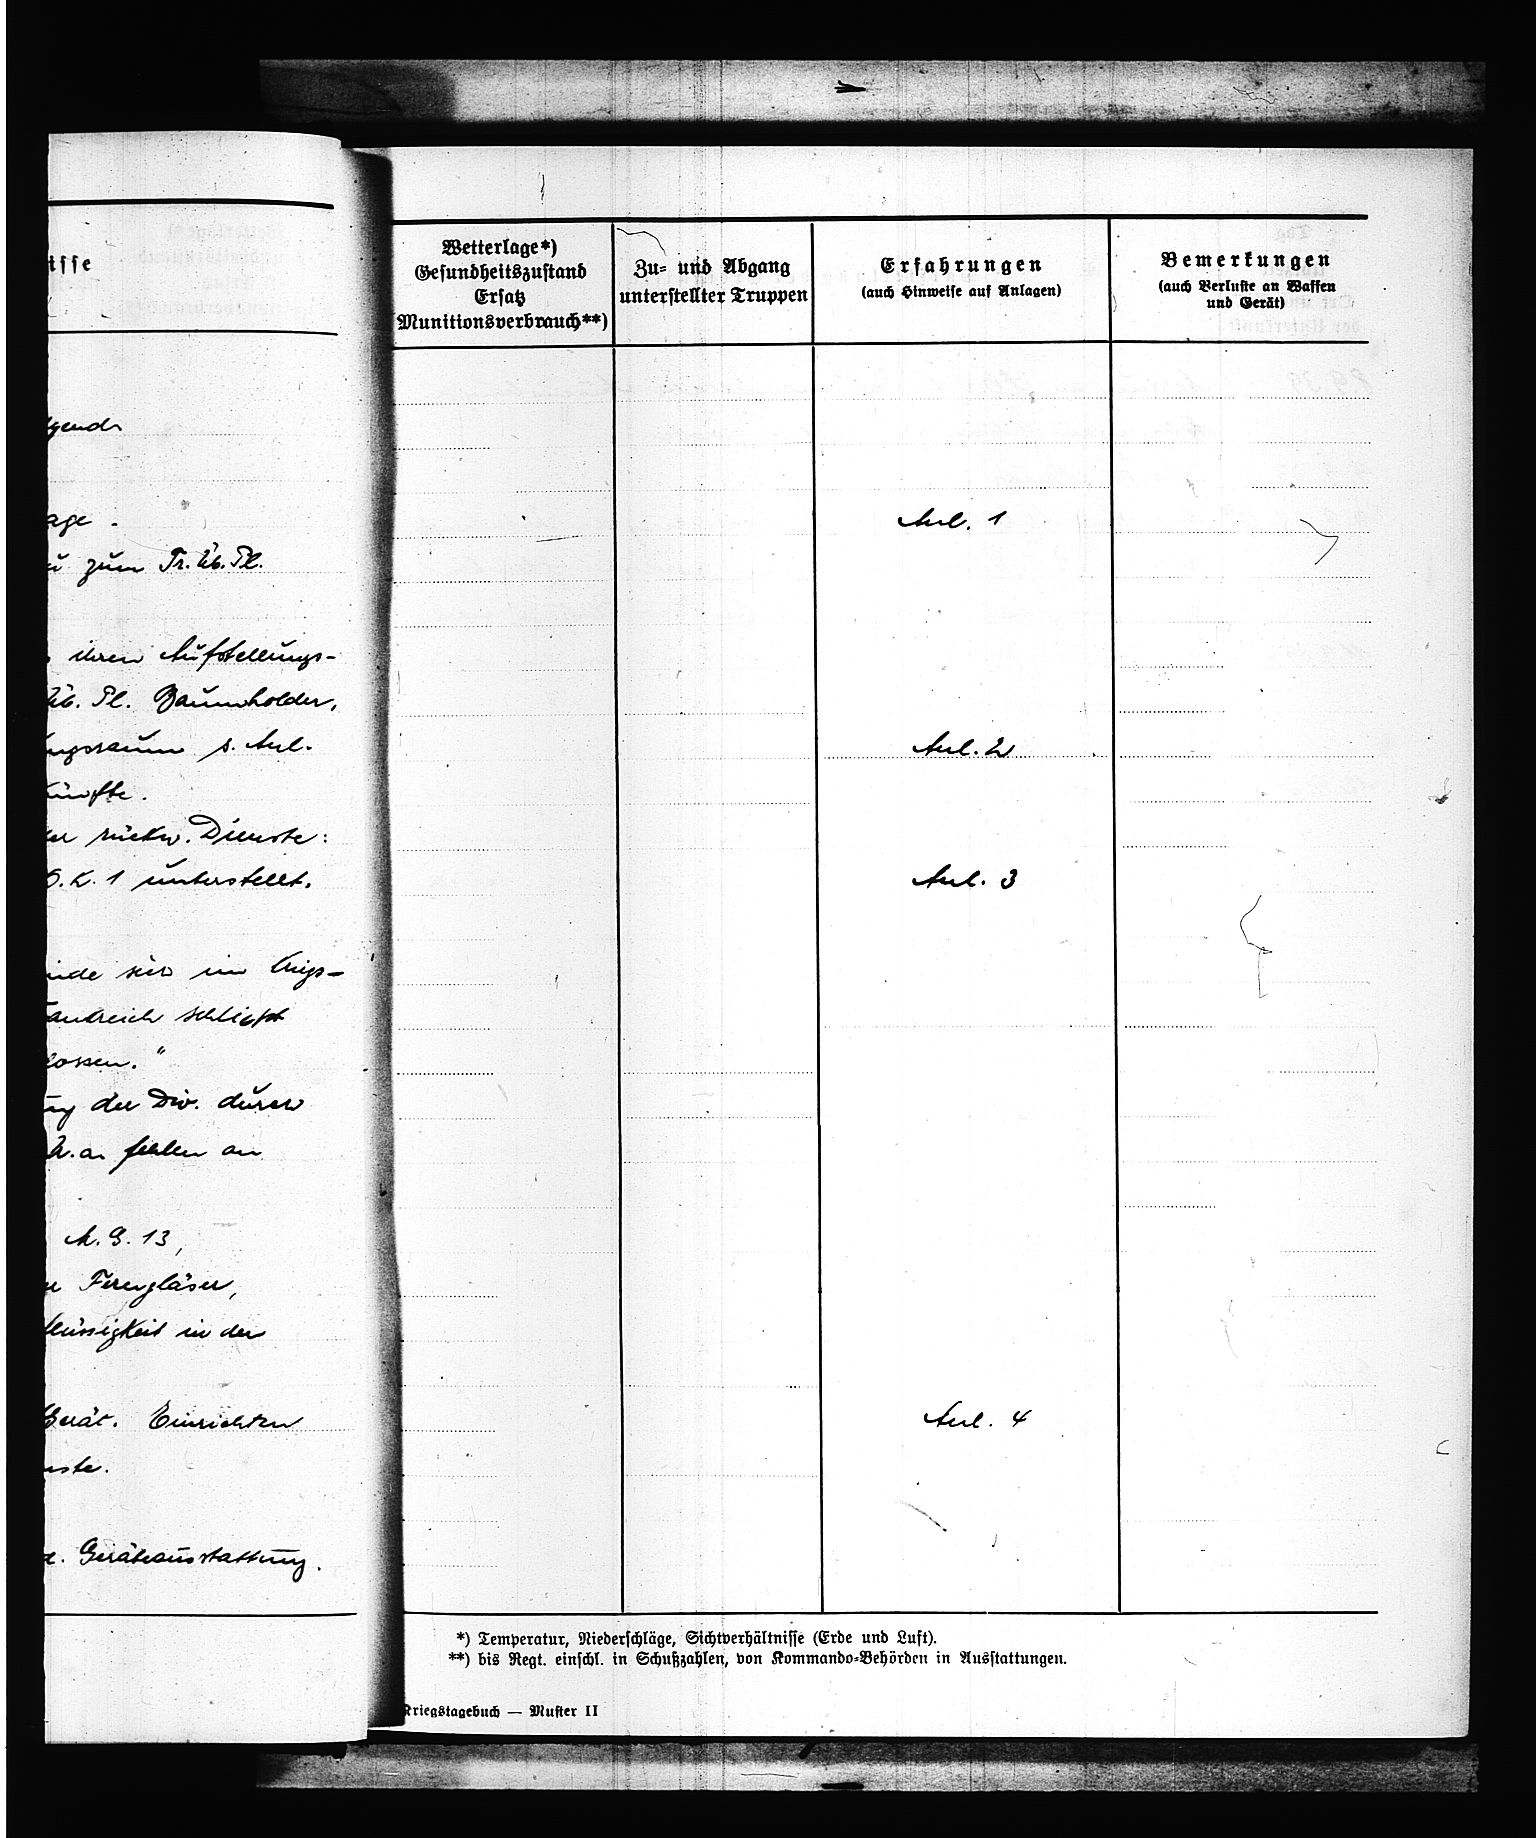 isse
age.
zum Tr. Üb. Pl.
ihren Aufstellungs-
Üb. Pl. Baumholder,
ungsraum s. Anl.
künfte.
der rückw. Dienste:
O.K. 1 unterstellt.
im Kriegs-
ankreich schließt
lossen."
ung der Div. durch
U.a. fehlen an
M.G. 13,
Ferngläser,
lüssigkeit in der
Gerät. Einrichten
nste.
Geräteausstattung.
Wetterlage*)
Gesundheitszustand
Ersatz
Munitionsverbrauch**)
Zu- und Abgang
unterstellter Truppen
Erfahrungen
(auch Hinweise auf Anlagen)
Bemerkungen
(auch Verluste an Waffen
und Gerät)
Anl. 1
Anl. 2
Anl. 3
Anl. 4
*) Temperatur, Niederschläge, Sichtverhältnisse (Erde und Luft).
**) bis Regt. einschl. in Schußzahlen, von Kommando-Behörden in Ausstattungen.
Kriegstagebuch — Muster II